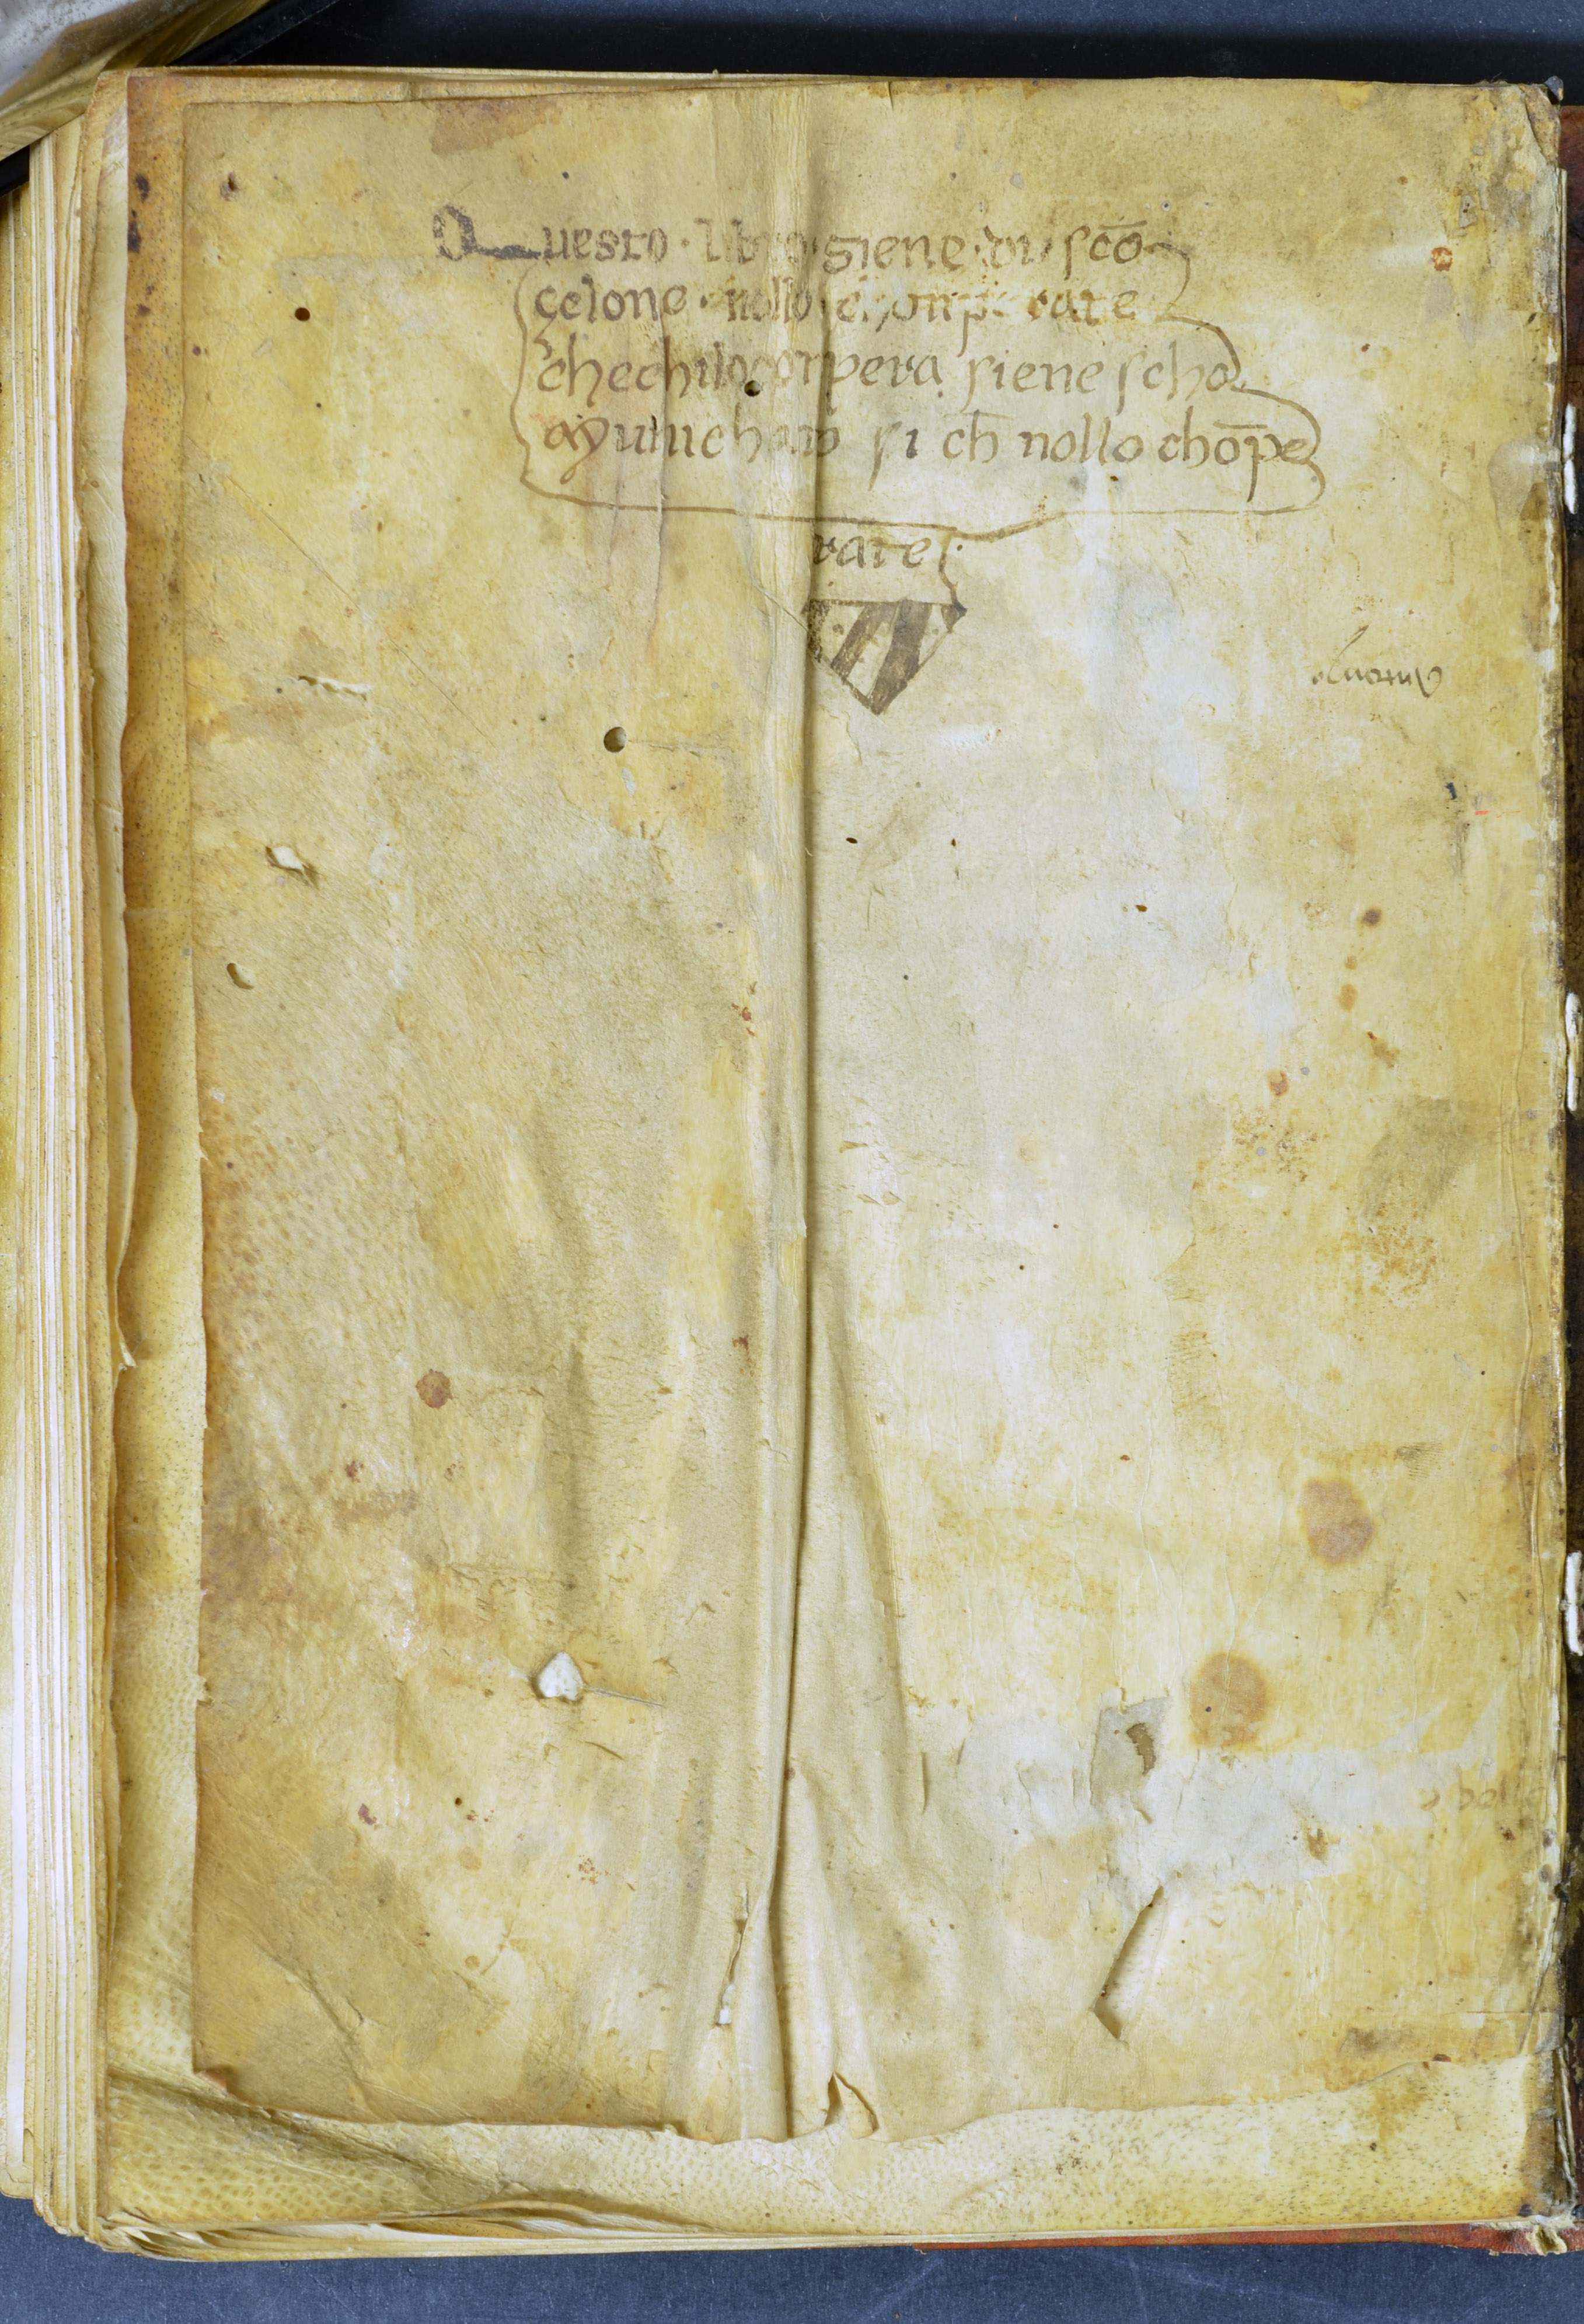 Questo · libro · siene · di · sc̄o
celone · nollo chonperate
chechilo conpera siene scho
 si ch̄ nollo chōpe
rate ·
Antony